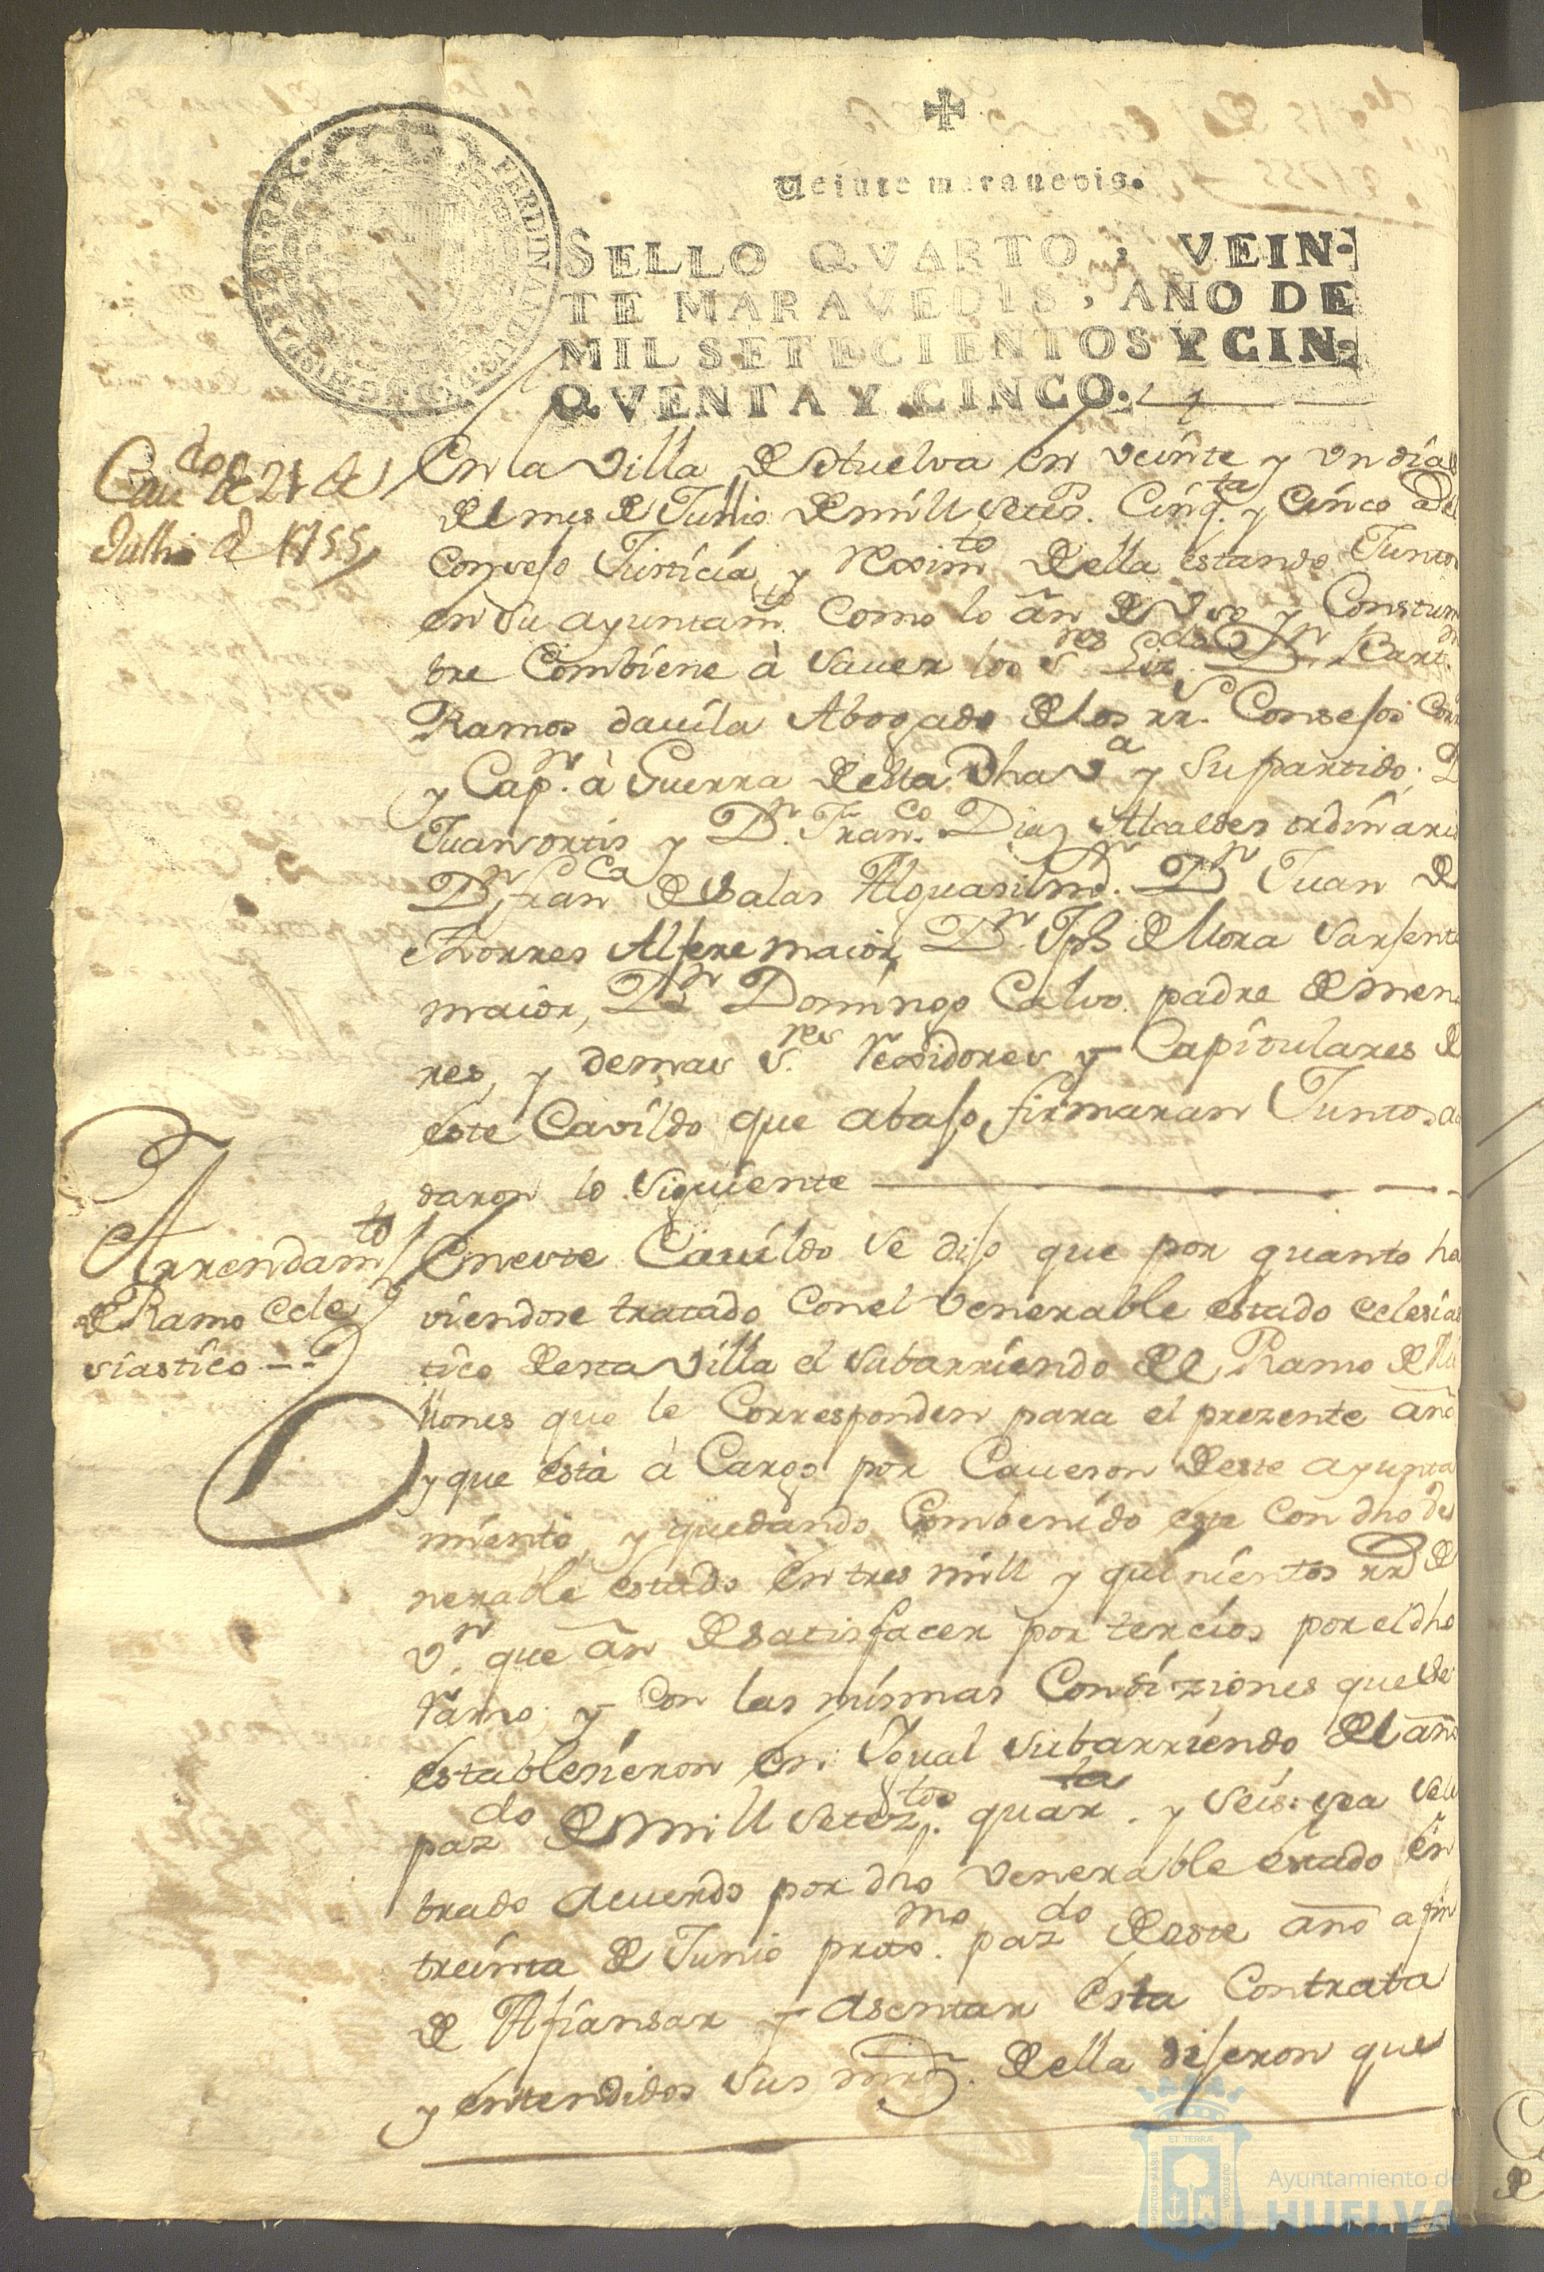 Veinte maravedis.
SELLO QVARTO, VEIN-
TE MARAVEDIS, AÑO DE
MIL SETECIENTOS Y CIN-
QVENTA Y CINCO.
FERDINANDUS
HISPANIAR. REX.
Cau.do de 21 de
Julho d 1755
En la Villa de Huelva en veinte y vn días
del mes de Jullio de mill setes. Cinq.ta y Cinco
Consejo Justicia y Rexim.to della estando Juntos
en su ayuntam.to Como lo an de Vso y Constum
bre Combiene à sauer los S.res Liz.do D.n Bart.
Ramos dauila Abogado de los rr.s Consejos Corr
y Cap.n à Guerra della dha V.a y su partido. D
Juan ortis y D.n Fran.co Diaz Alcaldes ordinario
D.n fran.ca de salas Alguasil m.r D.n Juan de
thorres Alfere maior, D.n Jph de Mora Sarjento
maior, D.n Domingo Calvo padre de meno
res, y demas S.res Rexidores y Capitulares de
este Cavildo que abajo firmaran Juntos a
daron lo siguiente
Arrendam.to
de Ramo Ecle
siastico
En este Cauildo se dijo que por quanto ha
viendose tratado con el Venerable estado eclesias
tico desta Villa el subarriendo del Ramo de Mi
llones que le Corresponden para el prezente año
y que està à Cargo por Caueson de este ayunta
miento, y quedando Combenido este con dho Ve
nerable estado en tres mill y quinientos rr.s de
v.n que an de satisfacer por tercios por el dho
ramo; y con las mismas Condiziones que se
establesieron en Igual subarriendo del año
paz.do de mill setez.tos quar.ta y seis: sea sele
brado acuerdo por dho Venerable estado en
treinta de Junio prox.mo paz.do de este año a fin
de Afiansar y asentar esta Contrata
y entendidos sus mrd.s della dijeron que
PORTUS MARIS
ET TERRÆ
CUSTODIA
Ayuntamiento de
HUELVA